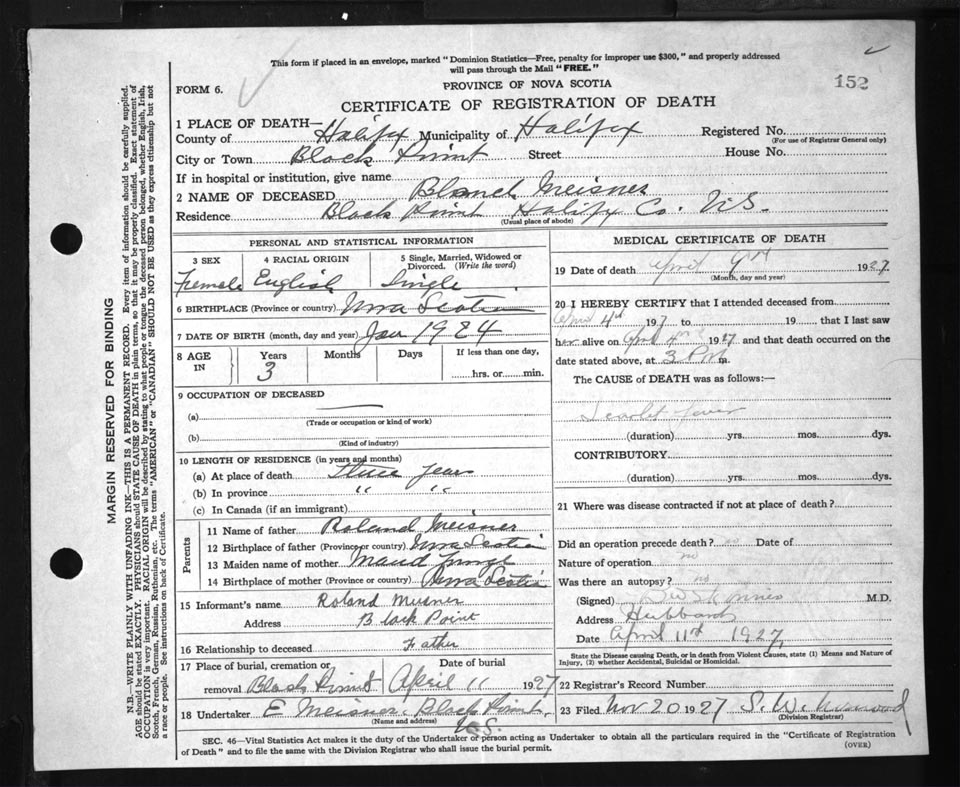 This form if placed in an envelope, marked "Dominion Statistics—Free, penalty for improper use $300," and properly addressed
will pass through the Mail "FREE."
152
FORM 6.
PROVINCE OF NOVA SCOTIA
CERTIFICATE OF REGISTRATION OF DEATH
1 PLACE OF DEATH—
County of Halifax Municipality of Halifax Registered No.
(For use of Registrar General only)
City or Town Black Point Street House No.
If in hospital or institution, give name
2 NAME OF DECEASED Blanch Meisner
Residence Black Point Halifax Co. N.S.
(Usual place of abode)
PERSONAL AND STATISTICAL INFORMATION
3 SEX 4 RACIAL ORIGIN 5 Single, Married, Widowed or
Divorced. (Write the word)
Female English Single
6 BIRTHPLACE (Province or country) Nova Scotia
7 DATE OF BIRTH (month, day and year) Jan 1924
8 AGE IN Years Months Days If less than one day,
3 hrs. or min.
9 OCCUPATION OF DECEASED
(a)
(Trade or occupation or kind of work)
(b)
(Kind of industry)
10 LENGTH OF RESIDENCE (in years and months)
(a) At place of death three years
(b) In province " "
(c) In Canada (if an immigrant)
Parents
11 Name of father Roland Meisner
12 Birthplace of father (Province or country) Nova Scotia
13 Maiden name of mother Maud
14 Birthplace of mother (Province or country) Nova Scotia
15 Informant's name Roland Meisner
Address Black Point
16 Relationship to deceased Father
17 Place of burial, cremation or Date of burial
removal Black Point April 11 1927
18 Undertaker E Meisner Black Point
(Name and address) N.S.
MEDICAL CERTIFICATE OF DEATH
19 Date of death April 1927
(Month, day and year)
20 I HEREBY CERTIFY that I attended deceased from
April 4th 1927 to 19 that I last saw
her alive on April 4th 1927 and that death occurred on the
date stated above, at 3 P.M. m.
The CAUSE of DEATH was as follows:—
Scarlet fever
(duration) yrs. mos. dys.
CONTRIBUTORY
(duration) yrs. mos. dys.
21 Where was disease contracted if not at place of death?
Did an operation precede death? no Date of
Nature of operation no
Was there an autopsy? no
(Signed) M.D.
Address Hubbards
Date April 11th 1927
State the Disease causing Death, or in death from Violent Causes, state (1) Means and Nature of
Injury, (2) whether Accidental, Suicidal or Homicidal.
22 Registrar's Record Number
23 Filed Nov 20 1927 S. W.
(Division Registrar)
SEC. 46—Vital Statistics Act makes it the duty of the Undertaker or person acting as Undertaker to obtain all the particulars required in the "Certificate of Registration
of Death" and to file the same with the Division Registrar who shall issue the burial permit.
(OVER)
MARGIN RESERVED FOR BINDING
N.B.—WRITE PLAINLY WITH UNFADING INK—THIS IS A PERMANENT RECORD. Every item of information should be carefully supplied.
AGE should be stated EXACTLY. PHYSICIANS should STATE CAUSE OF DEATH in plain terms, so that it may be properly classified. Exact statement of
OCCUPATION is very important. RACIAL ORIGIN will be described by stating to what people or tongue the deceased person belonged, whether English, Irish,
Scotch, French, German, Russian, Ruthenian, etc. The terms "AMERICAN" or "CANADIAN" SHOULD NOT BE USED as they express citizenship but not
a race or people. See instructions on back of Certificate.